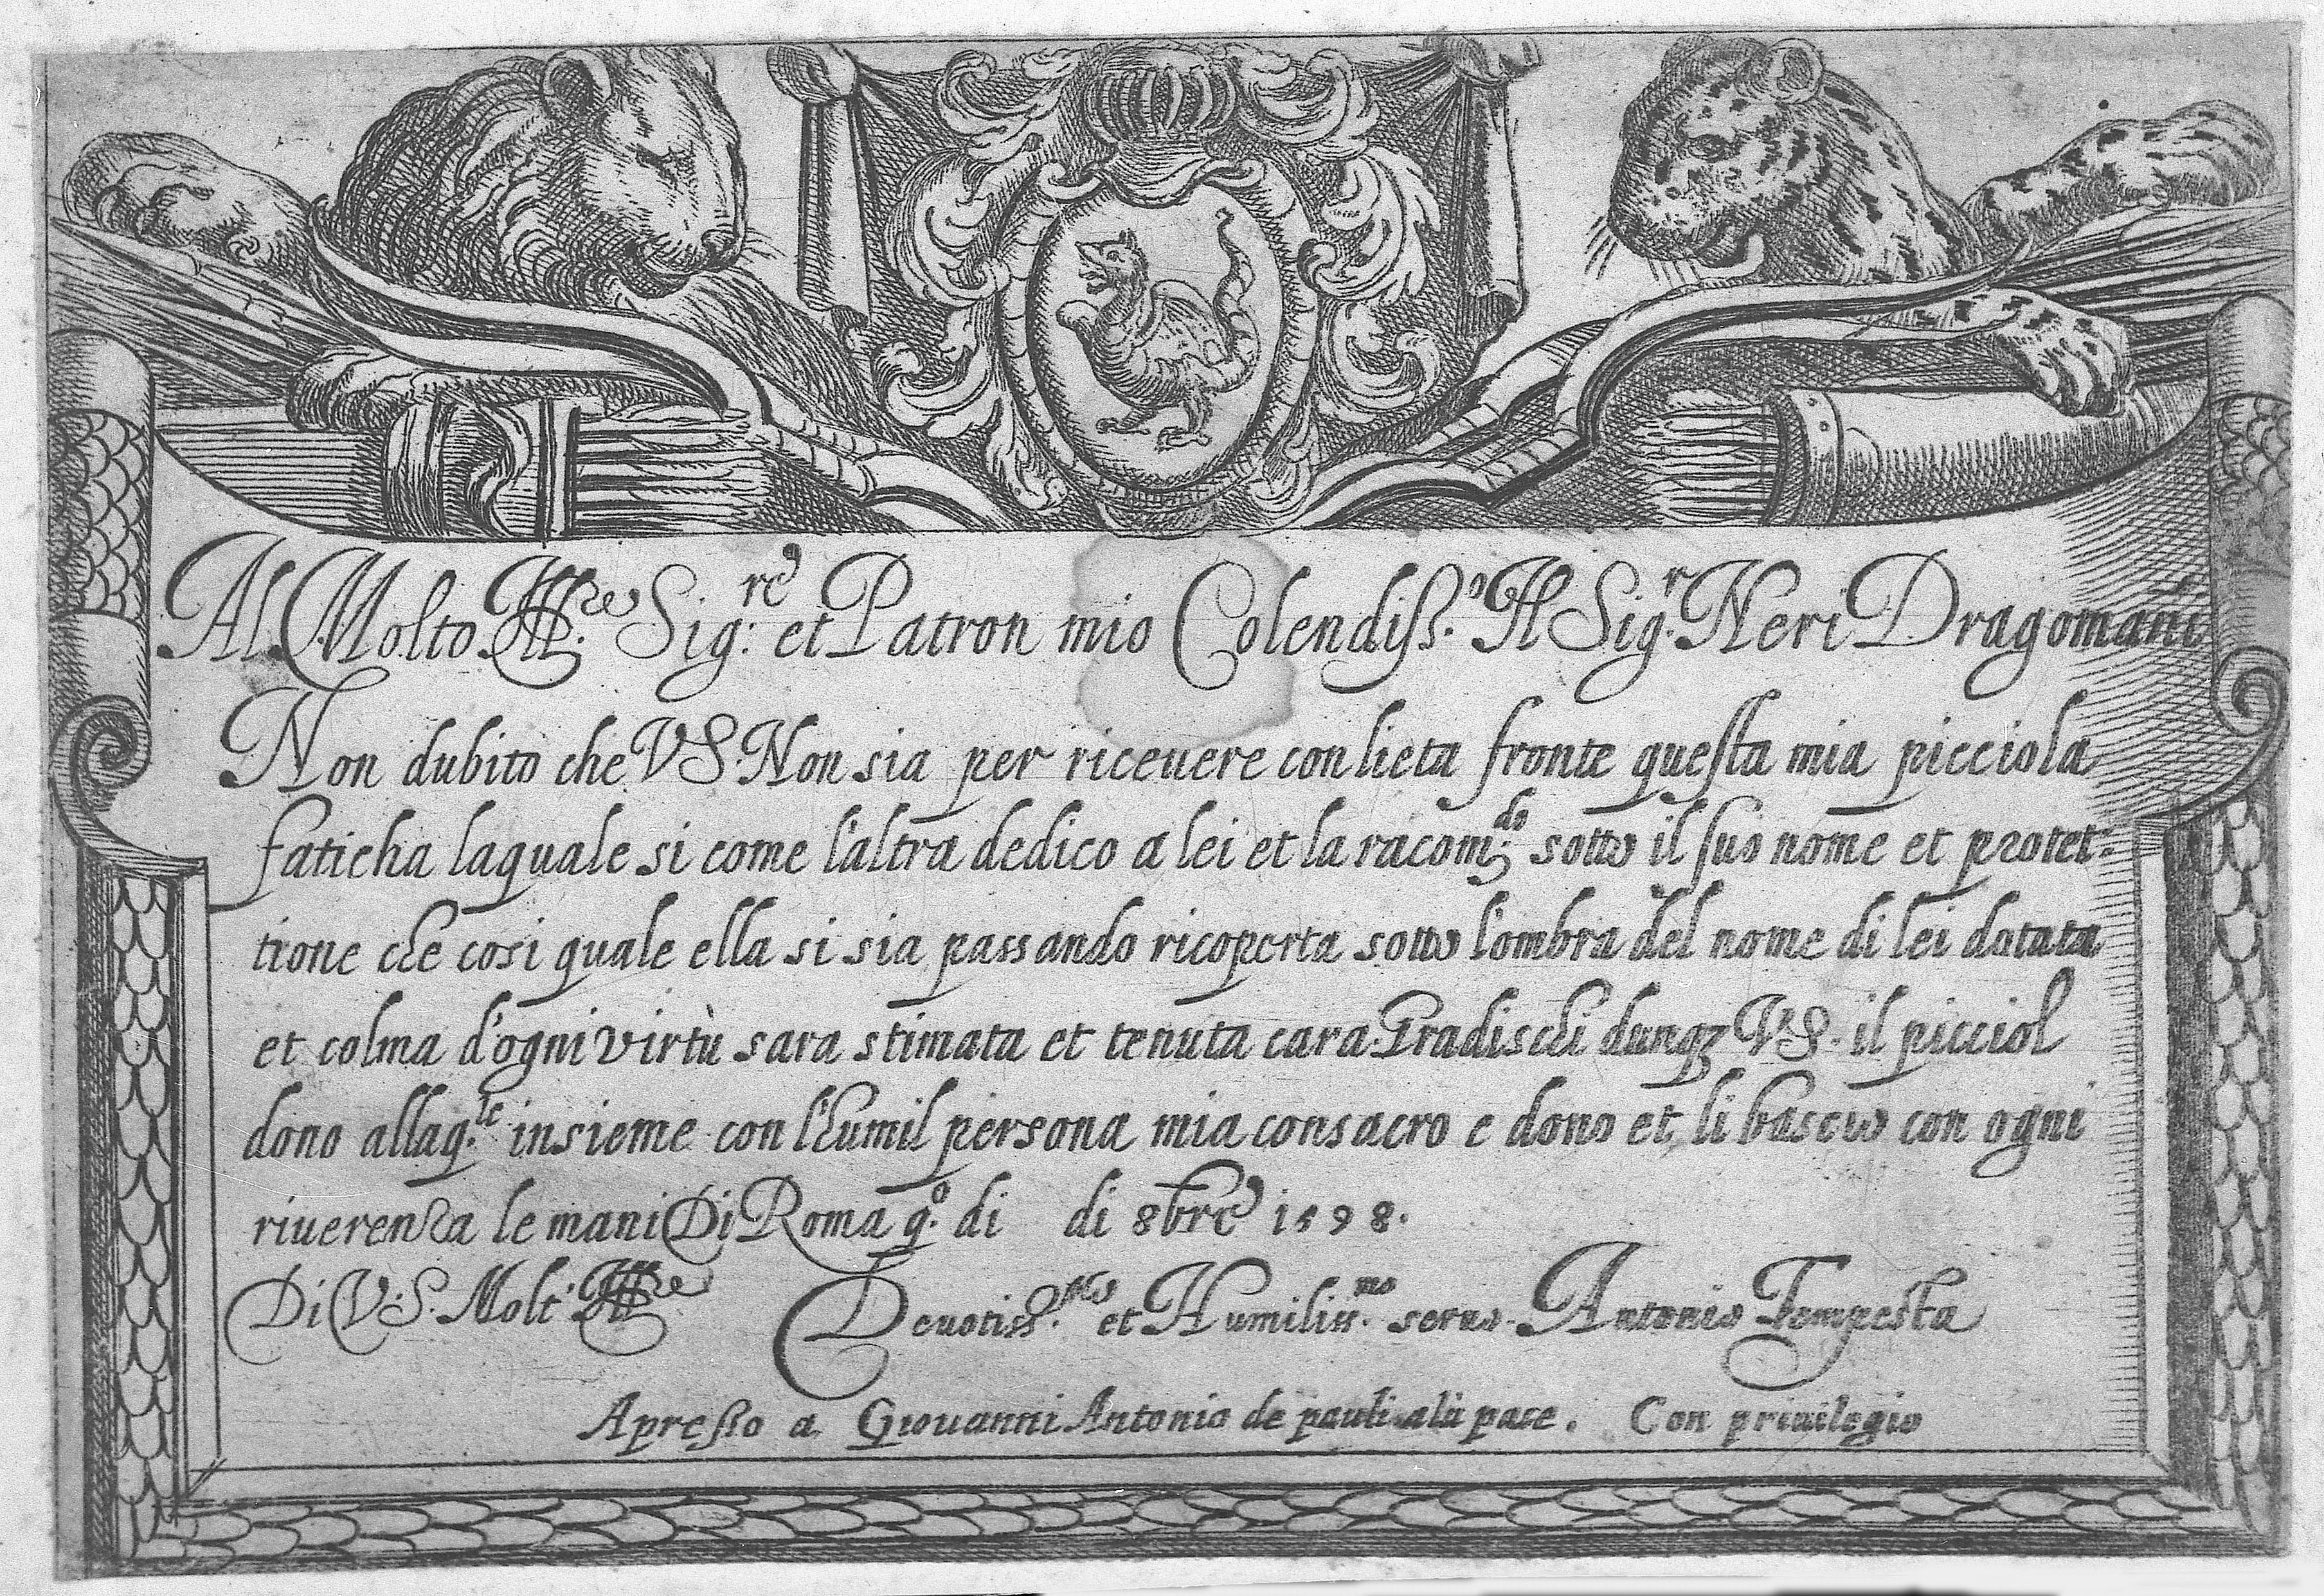 Al Molto Ill.re Sig:re et Patron mio Colendiss.o Il Sig.r Neri Dragomani
Non dubito che VS. Non sia per riceuere con lieta fronte questa mia picciola
faticha laquale si come l'altra dedico a lei et la racom.do sotto il suo nome et protet:
tione che cosi quale ella si sia passando ricoperta sotto l'ombra del nome di lei dotata
et colma d'ogni virtù sara stimata et tenuta cara. Gradischi dunqꝫ VS. il picciol
dono allaq.le insieme con l'humil persona mia consacro e dono et li bascio con ogni
riuerenza le mani Di Roma q.o di di 8bre 1598.
Di V.S. Molt' Ill.re Deuotiss.mo et Humiliss.mo seruo. Antonio Tempesta
Apresso a Giouanni Antonio de pauli ala pace. Con priuilegio